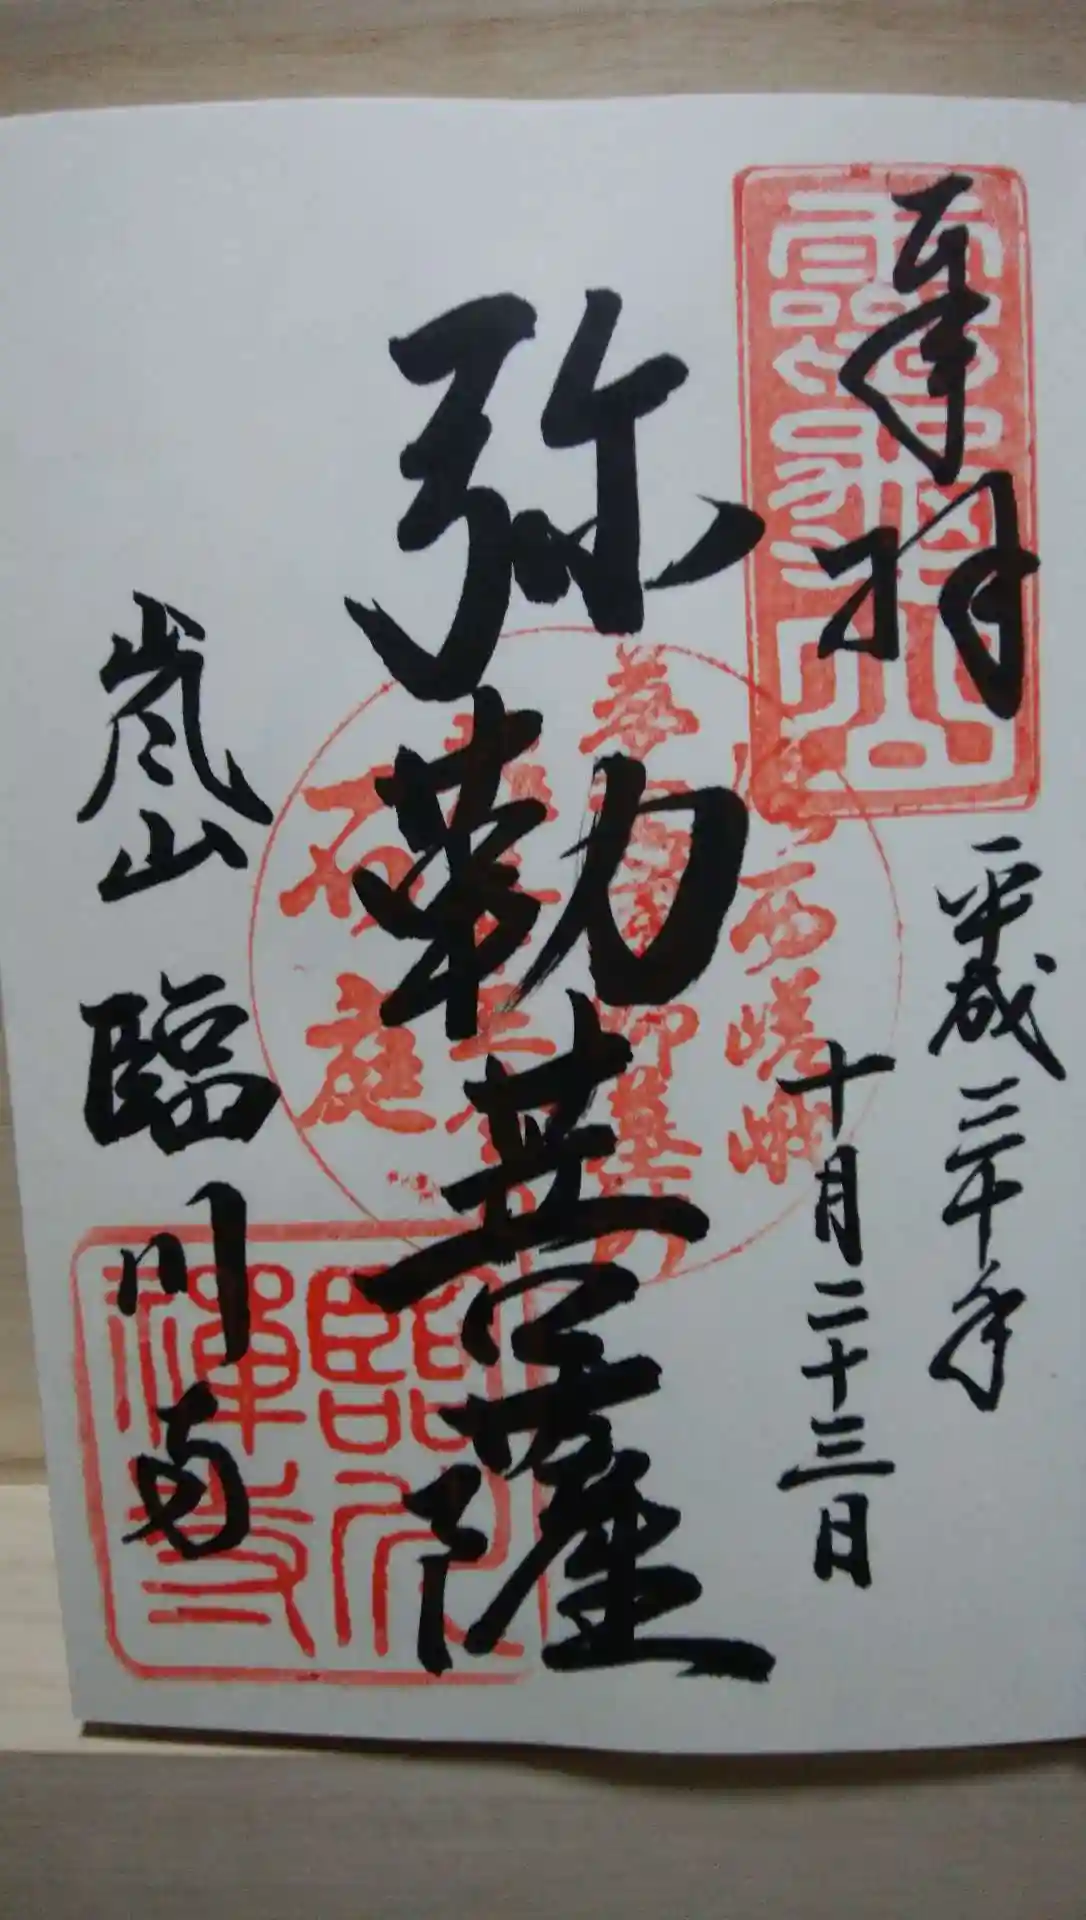 奉拝
靈龜山
平成三十年
十月二十三日
弥勒菩薩
洛西嵯峨
石庭
嵐山 臨川寺
臨川
禪寺